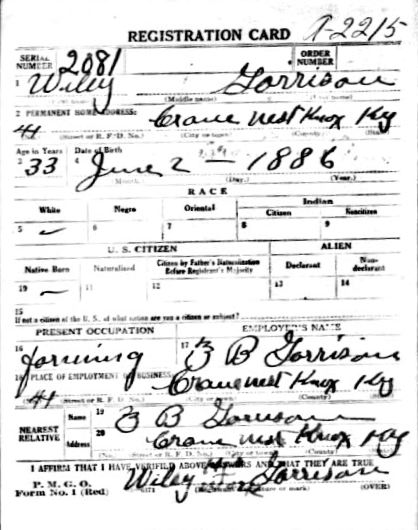 REGISTRATION CARD A-2215
SERIAL NUMBER 2081 ORDER NUMBER
1 Wiley Garrison
(Middle name)
2 PERMANENT HOME ADDRESS: Crane nest Knox Ky
41
(No.) (Street or R. F. D. No.) (City or town) (County) (State)
Age in Years Date of Birth
3 33 4 June 2 1886
Month (Day.) (Year.)
RACE
White Negro Oriental Indian
Citizen Noncitizen
5 6 7 8 9
U. S. CITIZEN ALIEN
Native Born Naturalized Citizen by Father's Naturalization Before Registrant's Majority Declarant Non-declarant
10 11 12 13 14
15
If not a citizen of the U. S., of what nation are you a citizen or subject?
PRESENT OCCUPATION EMPLOYER'S NAME
16 farming 17 B Garrison
18 PLACE OF EMPLOYMENT OR BUSINESS: Crane nest Knox Ky
41
(No.) (Street or R. F. D. No.) (City or town) (County) (State)
NEAREST RELATIVE
Name 19 B Garrison
Address 20 Crane nest Knox Ky
I AFFIRM THAT I HAVE VERIFIED ABOVE ANSWERS AND THAT THEY ARE TRUE
P. M. G. O.
Form No. 1 (Red) Wiley Garrison (OVER)